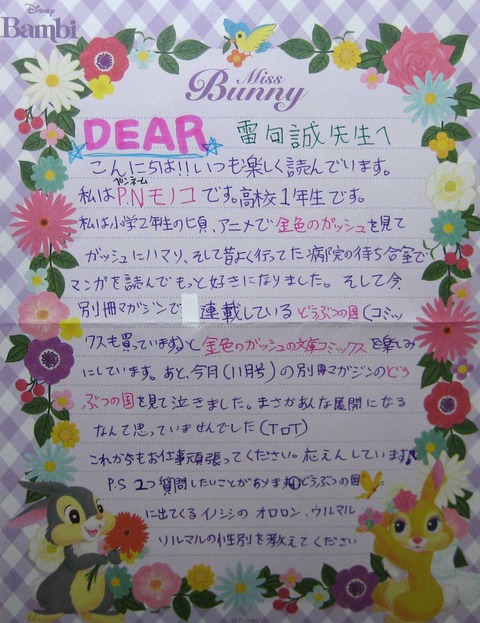 Disney
Bambi
Miss
Bunny
DEAR 雷句誠先生へ
こんにちは!!いつも楽しく読んでいます。
ペンネーム
私はP.Nモノコです。高校1年生です。
私は小学2年生の頃、アニメで金色のガッシュを見て
ガッシュにハマリ、そして昔よく行ってた病院の待ち合室で
マンガを読んでもっと好きになりました。そして今、
別冊マガジンで連載しているどうぶつの国(コミッ
クスも買っています)と金色のガッシュの文庫コミックスを楽しみ
にしています。あと、今月(11月号)の別冊マガジンのどう
ぶつの国を見て泣きました。まさかあんな展開になる
なんて思っていませんでした(T□T)
これからもお仕事頑張ってください。応えんしています♪
P.S 2つ質問したいことがあります①どうぶつの国
に出てくるイノシシのオロロン、ウルマル
ソルマルの性別を教えてください